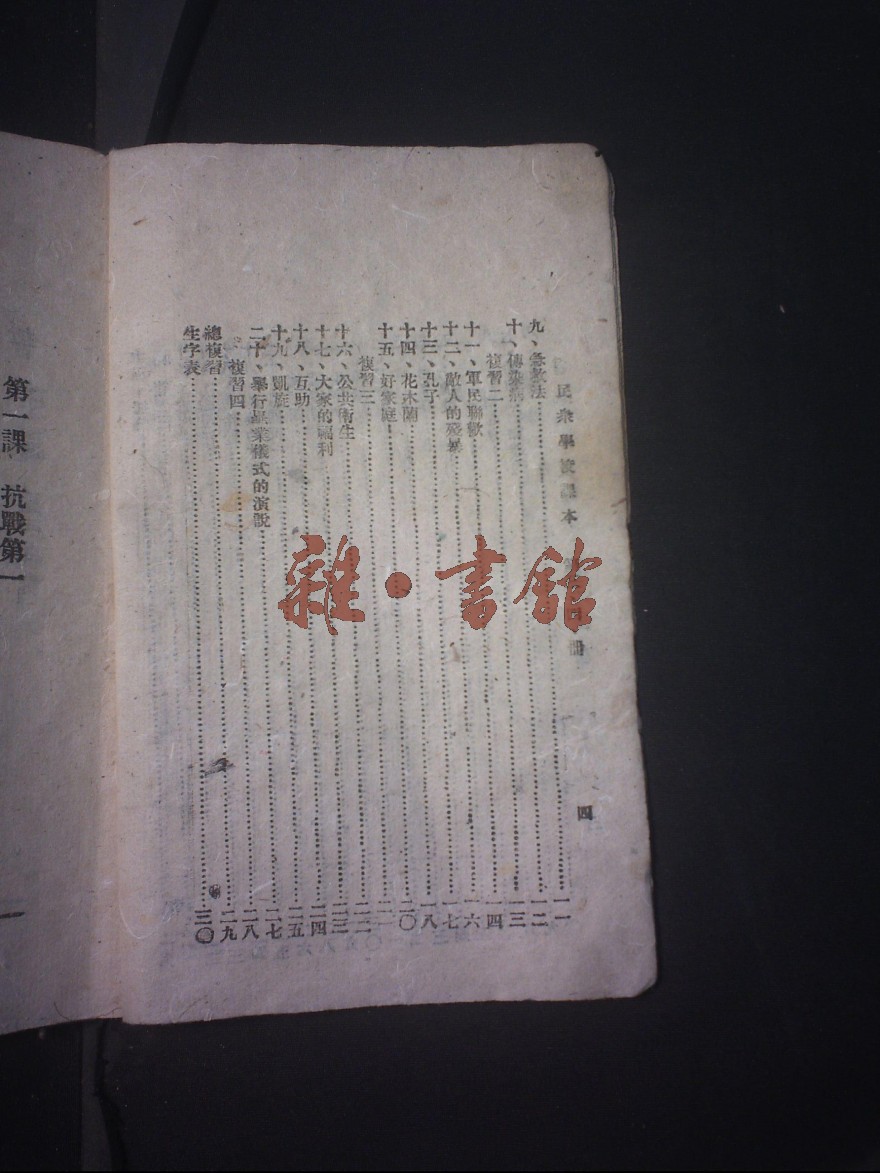 民衆學校課本 冊 四
九、急救法……一一
十、傳染病……一二
複習二……一三
十一、軍民聯歡……一四
十二、敵人的殘暴……一六
十三、孔子……一七
十四、花木蘭……一八
十五、好家庭……二〇
複習三……二一
十六、公共衛生……二二
十七、大家的福利……二三
十八、互助……二四
十九、凱旋……二五
二十、舉行畢業儀式的演說……二七
複習四……二八
總複習……二九
生字表……三〇
第一課 抗戰第一
雜·書館